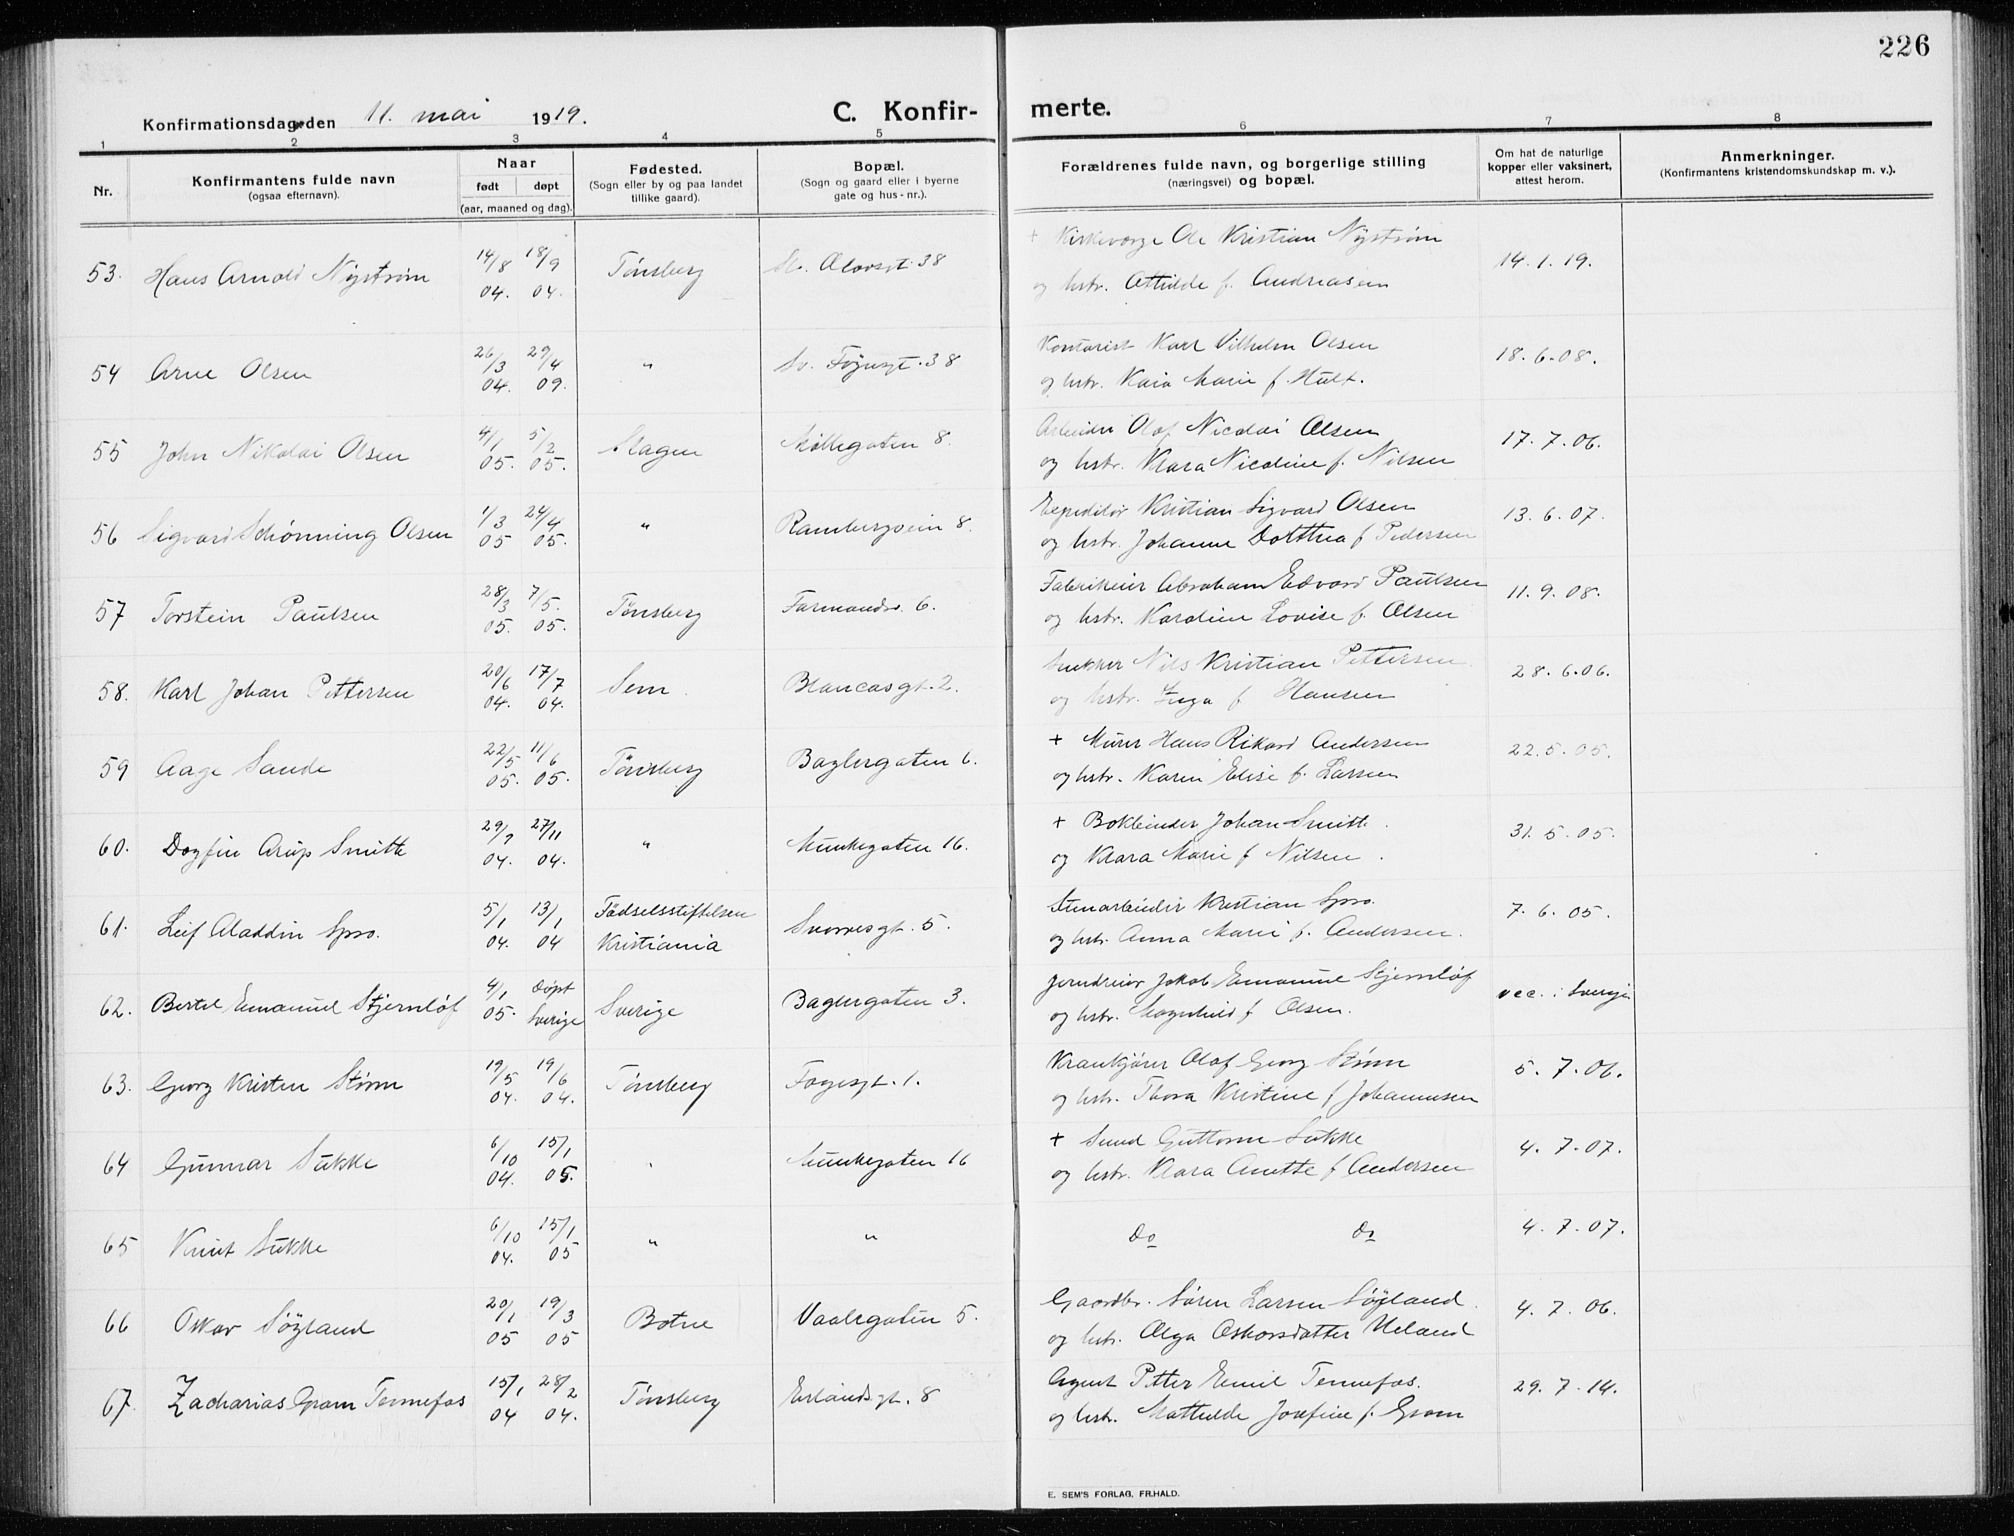 226
Konfirmationsdag den 11. mai 1919.
C. Konfir- merte.
1 2 3 4 5 6 7 8
Nr.
Konfirmantens fulde navn
(ogsaa efternavn).
Naar
født døpt
(aar, maaned og dag).
Fødested.
(Sogn eller by og paa landet
tillike gaard).
Bopæl.
(Sogn og gaard eller i byerne
gate og hus-nr.).
Forældrenes fulde navn, og borgerlige stilling
(næringsvei) og bopæl.
Om hat de naturlige
kopper eller vaksinert,
attest herom.
Anmerkninger.
(Konfirmantens kristendomskundskap m. v.).
+ Kirkeværge Ole Kristian Nystrøm
53. Hans Arnold Nystrøm 14/8 04. 18/9 04. Tønsberg St. Olavsgt. 38 14.1.19.
og hstr. Athilde f. Andreasen
Kontorist Karl Vilhelm Olsen
54 Arne Olsen 26/3 04. 29/4 09. " 38 18.6.08.
og hstr. Kaia Marie f. Hult.
Arbeider Olaf Nicolai Olsen
55 John Nikolai Olsen 4/1 05. 5/2 05. Slagen Møllegaten 8. 17.7.06.
og hstr. Klara Nicoline f. Nilsen
Expeditør Kristian Sigvard Olsen
56 Sigvard Schønning Olsen 1/3 05 24/4 05. " Rambergvein 8. 13.6.07.
og hstr. Johanne Dorthea f Pedersen
Fabrikeier Abraham Edvard Paulsen
57 Torstein Paulsen 28/3 05. 7/5. 05. Tønsberg Farmandsv. 6. 11.9.08.
og hstr. Karoline Lovise f. Olsen
Snekker Nils Kristian Pettersen
58. Karl Johan Pettersen 20/6 04. 17/7 04. Sem. Blancasgt. 2. 28.6.06.
og hstr. Inga f Hansen
+ Murer Hans Rikard Andersen
59 Aage Sande 22/5 05. 11/6 05. Tønsberg Baglergaten 6. 22.5.05.
og hstr. Karen Elise f. Larsen
+ Bokbinder Johan Smith.
60. Dagfin Arup Smith 29/9 04. 27/11 04. " Munkegaten 16. 31.5.05.
og Klara Marie f Nilsen.
Stenarbeider Kristian Spro.
61. Leif Aladdin Spro. 5/1 04. 13/1 04 Fødselsstiftelsen Kristiania Snorresgt. 5. 7.6.05.
og hstr. Anna Marie f. Andersen.
Jerndreier Jakob Emanuel Stjernløf
62. Bertil Emanuel Stjernløf 4/1 05. døpt Sverige Sverige Baglergaten 3. vac. i Sverige
og hstr. Magnhild f Olsen.
Krankjører Olaf Georg Størm
63. Georg Kristen Størm 19/5 04. 19/6 04. Tønsberg Fogesgt. 1. 5.7.06.
og hstr. Thora Kristine f Johannesen
+ Smed Guttorm Sukke
64 Gunnar Sukke 6/10 04. 15/1 05. " Munkegaten 16 4.7.07.
og hstr. Klara Anette f Andersen
65 Knut Sukke 6/10 04. 15/1 05 " " Do Do 4.7.07.
Gaardbr. Søren Larsen Søyland.
66 Oskar Søyland 20/1 05 19/3 05 Botne Vaalegaten 5. 4.7.06.
og hstr. Olga Oskarsdatter Ueland
Agent Petter Emil Tennefos.
67. Zacharias Gram Tennefos 15/1 04 28/2 04. Tønsberg Erlandsgt. 8 29.7.14.
og hstr. Mathilde Josefine f. Gram
E. SEM'S FORLAG, FR.HALD.